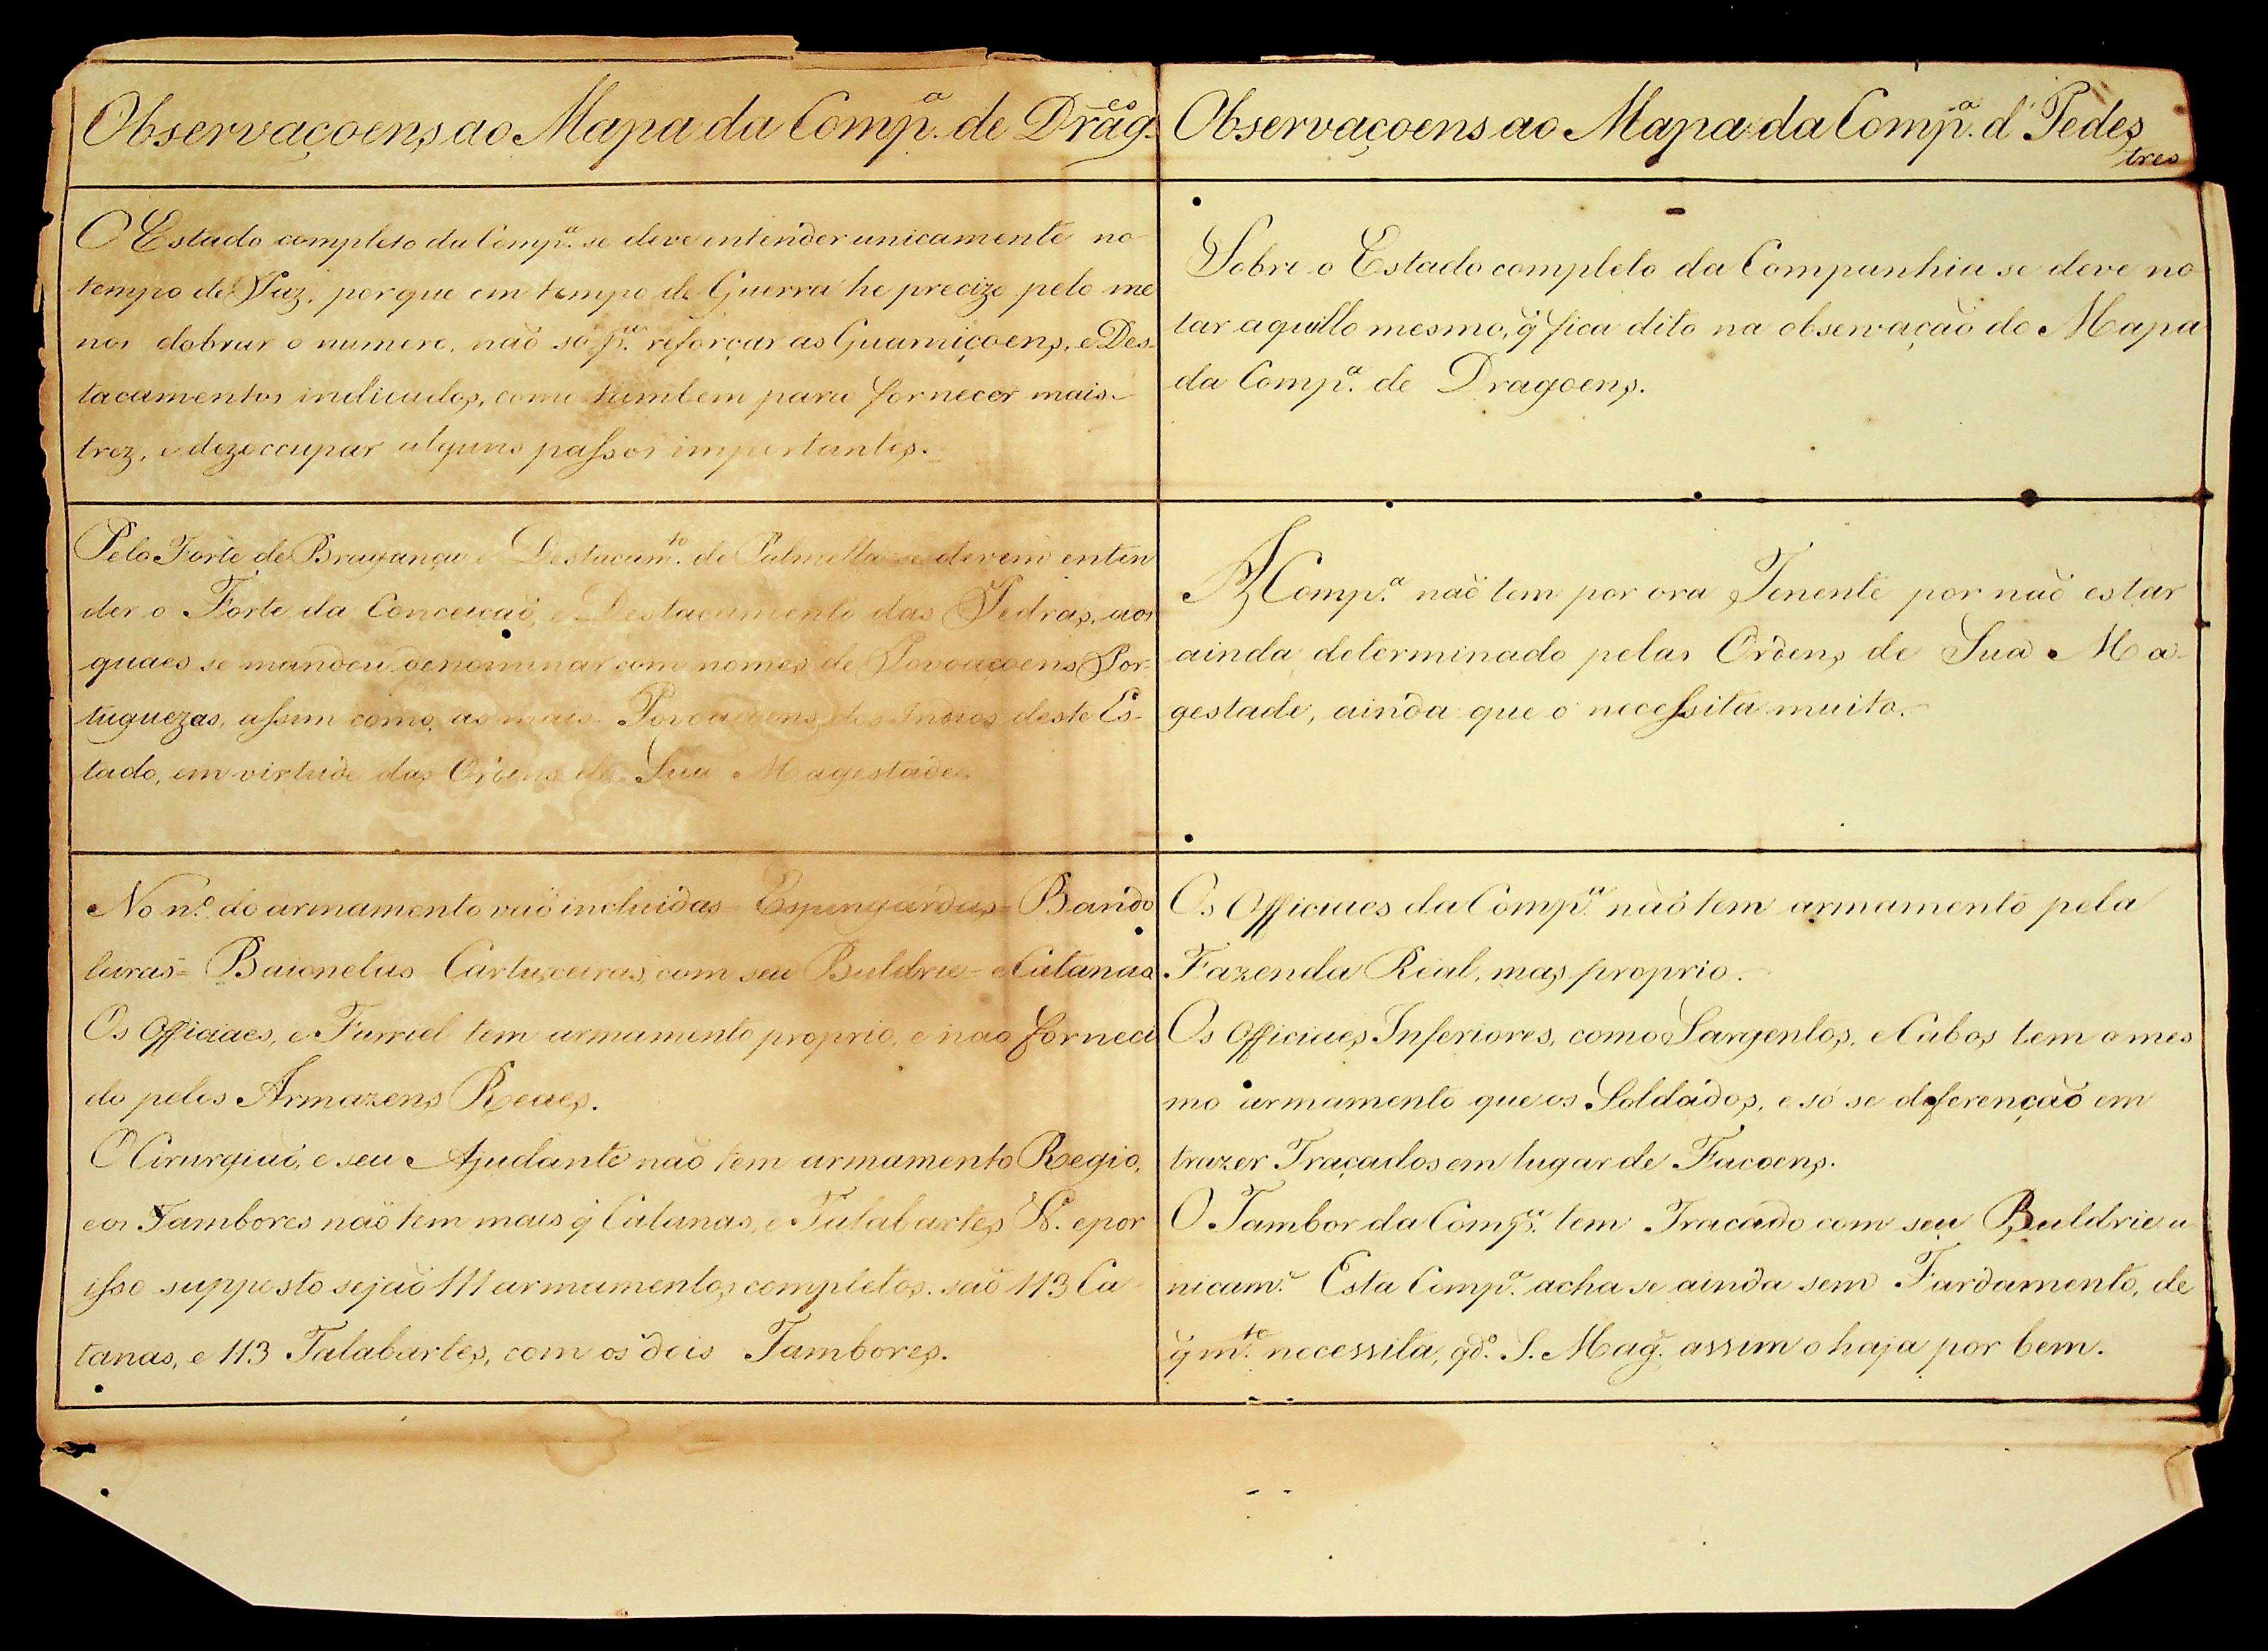 Observaçoens ao Mapa da Comp.ª de Drag.es
O Estado completo da Comp.ª se deve entender unicamente no
tempo de Paz, porque em tempo de Guerra he precizo pelo me
nos dobrar o numero, naõ só p.ª reforçar as Guarniçoens, e Des-
tacamentos indicados, como tambem para fornecer mais
trez, e dezoccupar alguns passos importantes.
Pelo Forte de Bragança e Destacam.to de Palmella se devem enten
der o Forte da Conceiçaõ, e Destacamento das Pedras, aos
quaes se mandou denominar com nomes de Povoaçoens Por-
tuguezas, assim como as mais Povoaçoens dos Indios deste Es-
tado, em virtude das Ordens de Sua Magestade.
No n.º do armamento vaõ incluidas Espingardas = Bando
leiras = Baionetas Cartuxeiras, com seu Buldrie = e Catanas
Os Officiaes, e Furriel tem armamento proprio, e naõ forneci
do pelos Armazens Reaes.
O Cirurgiaõ, e seu Ajudante naõ tem armamento Regio,
e os Tambores naõ tem mais q̃ Catanas, e Talabartes N. e por
isso supposto sejaõ 111 armamentos completos. saõ 113 Ca-
tanas, e 113 Talabartes, com os dois Tambores.
Observaçoens ao Mapa da Comp.ª d' Pedes
tres
Sobre o Estado completo da Companhia se deve no
tar aquillo mesmo, q̃ fica dito na observaçaõ do Mapa
da Comp.ª de Dragoens.
A Comp.ª naõ tem por ora Tenente por naõ estar
ainda determinado pelas Ordens de Sua Ma-
gestade, ainda que o necessita muito.
Os Officiaes da Comp.ª naõ tem armamento pela
Fazenda Real, mas proprio.
Os Officiaes Inferiores, como Sargentos, e Cabos tem o mes
mo armamento que os Soldados, e só se diferençaõ em
trazer Traçados em lugar de Facoens.
O Tambor da Comp.ª tem Tracado com seu Buldrie u
nicam.e Esta Comp.ª acha se ainda sem Fardamento, de
q̃ m.to necessita, qd.º S. Mag.e assim o haja por bem.